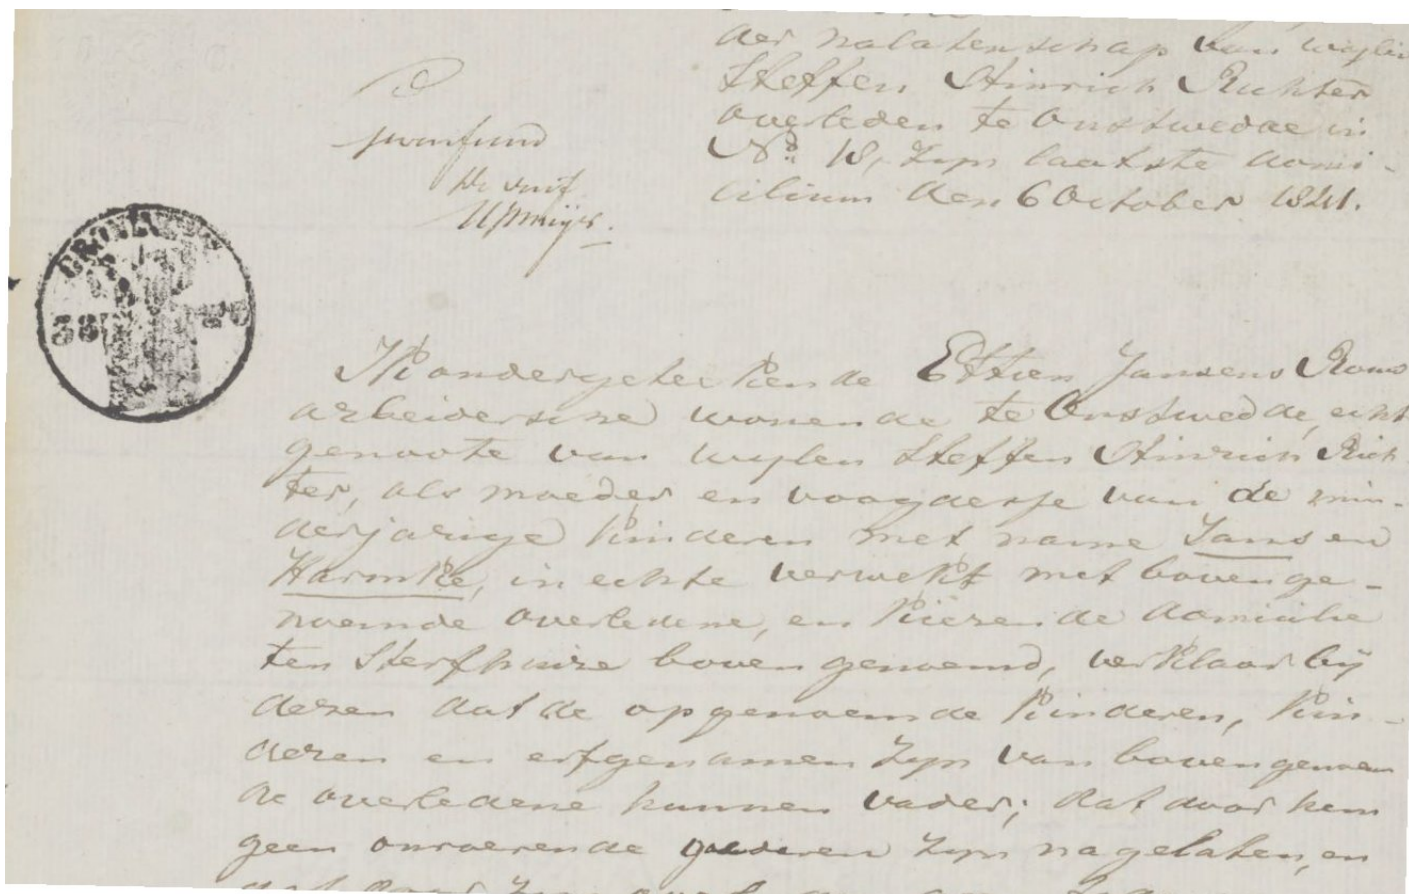 der nalatenschap van wylen
Steffen Hinrich Richter
overleden te Onstwedde in
N.o 18, zyn laatste domi-
cilium den 6 October 1841.
GRONINGEN
38
Ik ondergeteekende Ettien Jansens
arbeidersche wonende te Onstwedde, echt
genoote van wylen Steffen Hinrich Rich
ter, als moeder en voogdesse van de min-
derjarige kinderen met name Jans en
Harmke, in echte verwekt met bovenge-
noemde overledene, en kiezende domicilie
ten sterfhuize bovengenoemd, verklaar by
dezen dat de opgenoemde kinderen, kin-
deren en erfgenamen zyn van bovengenoem
de overledene hunnen vader; dat door hem
geen onroerende goederen zyn nagelaten, en